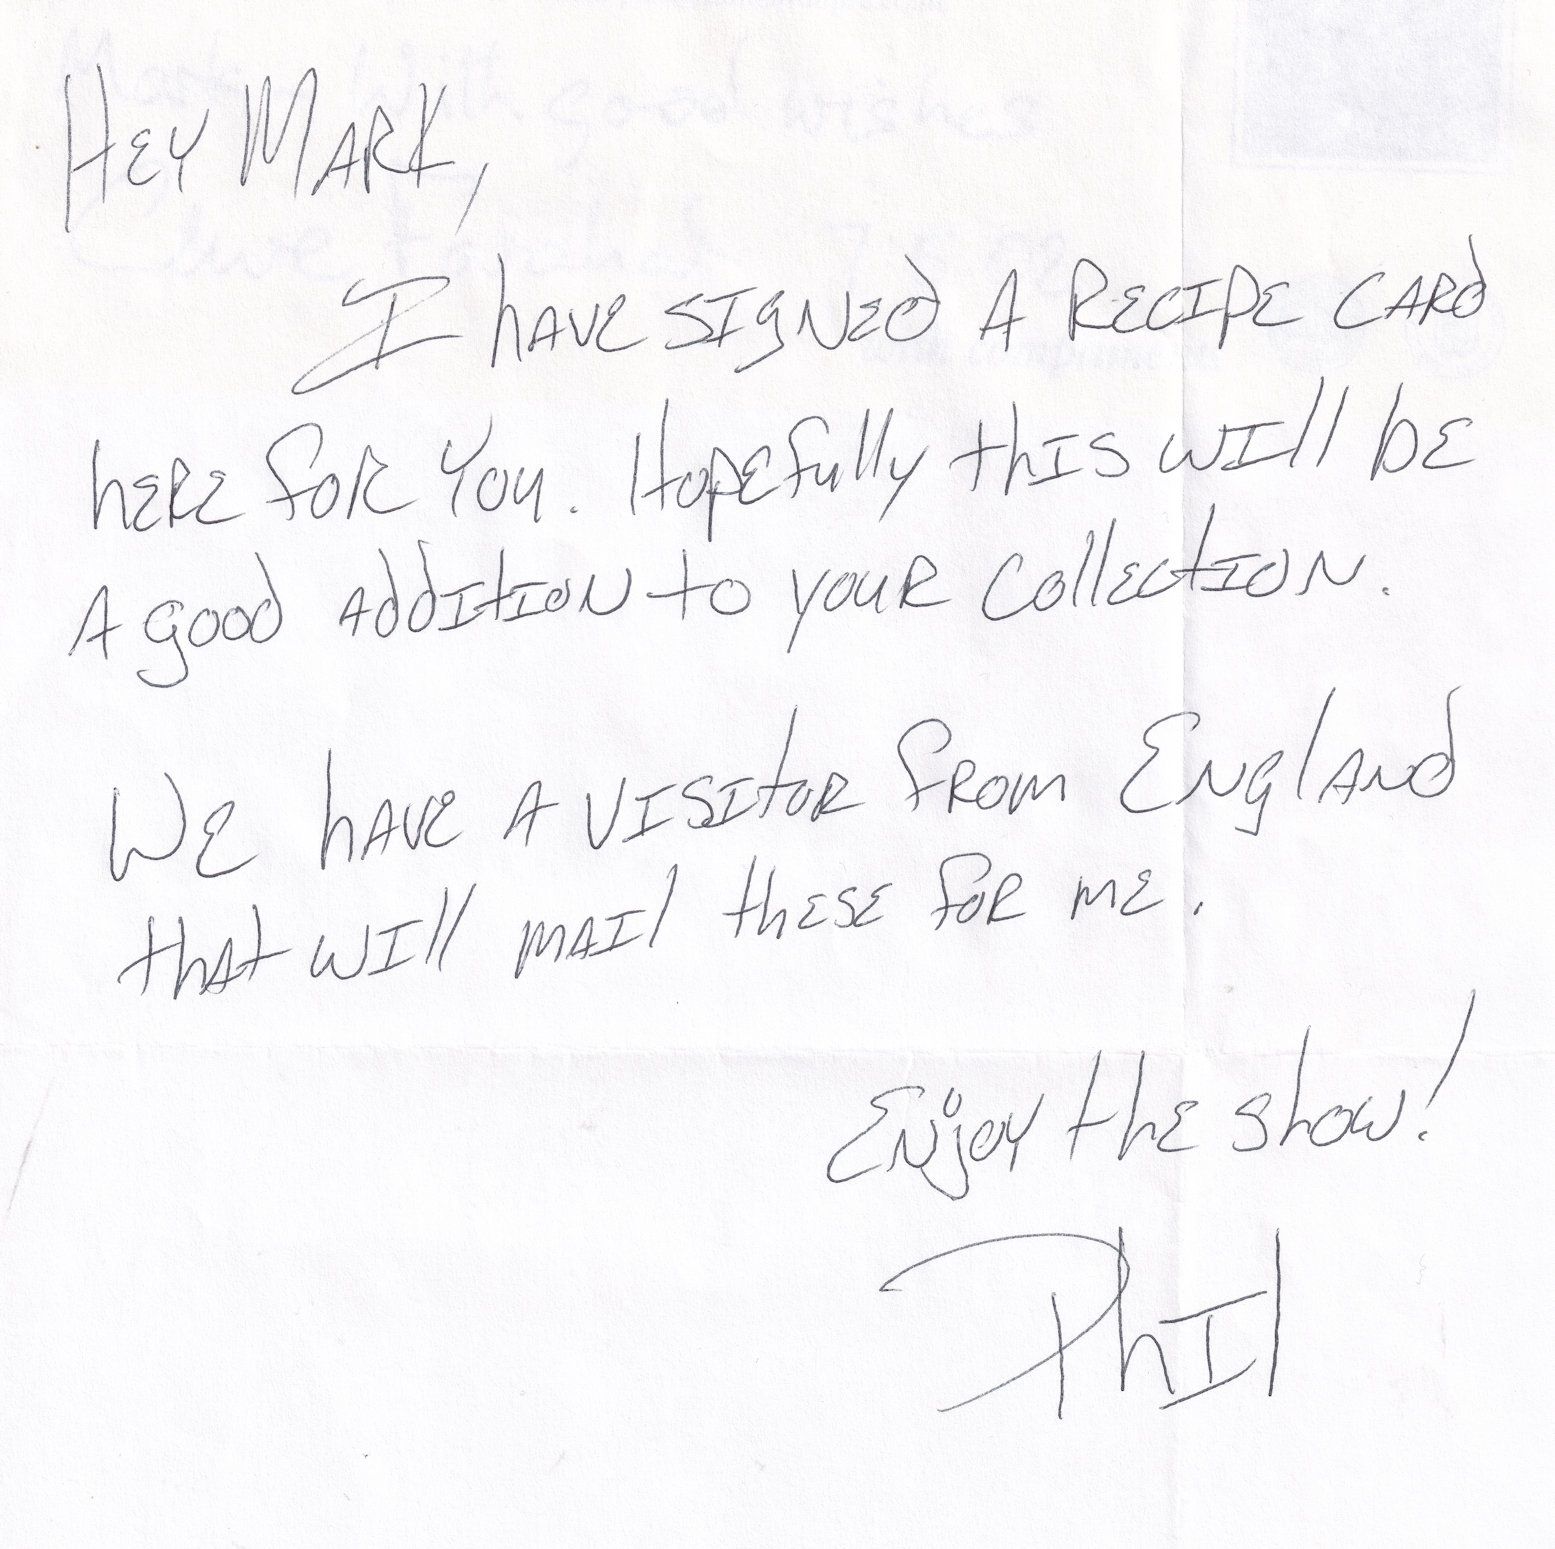 Hey Mark,
I have signed a recipe card
here for you. Hopefully this will be
a good addition to your collection.
We have a visitor from England
that will mail these for me.
Enjoy the show!
Phil